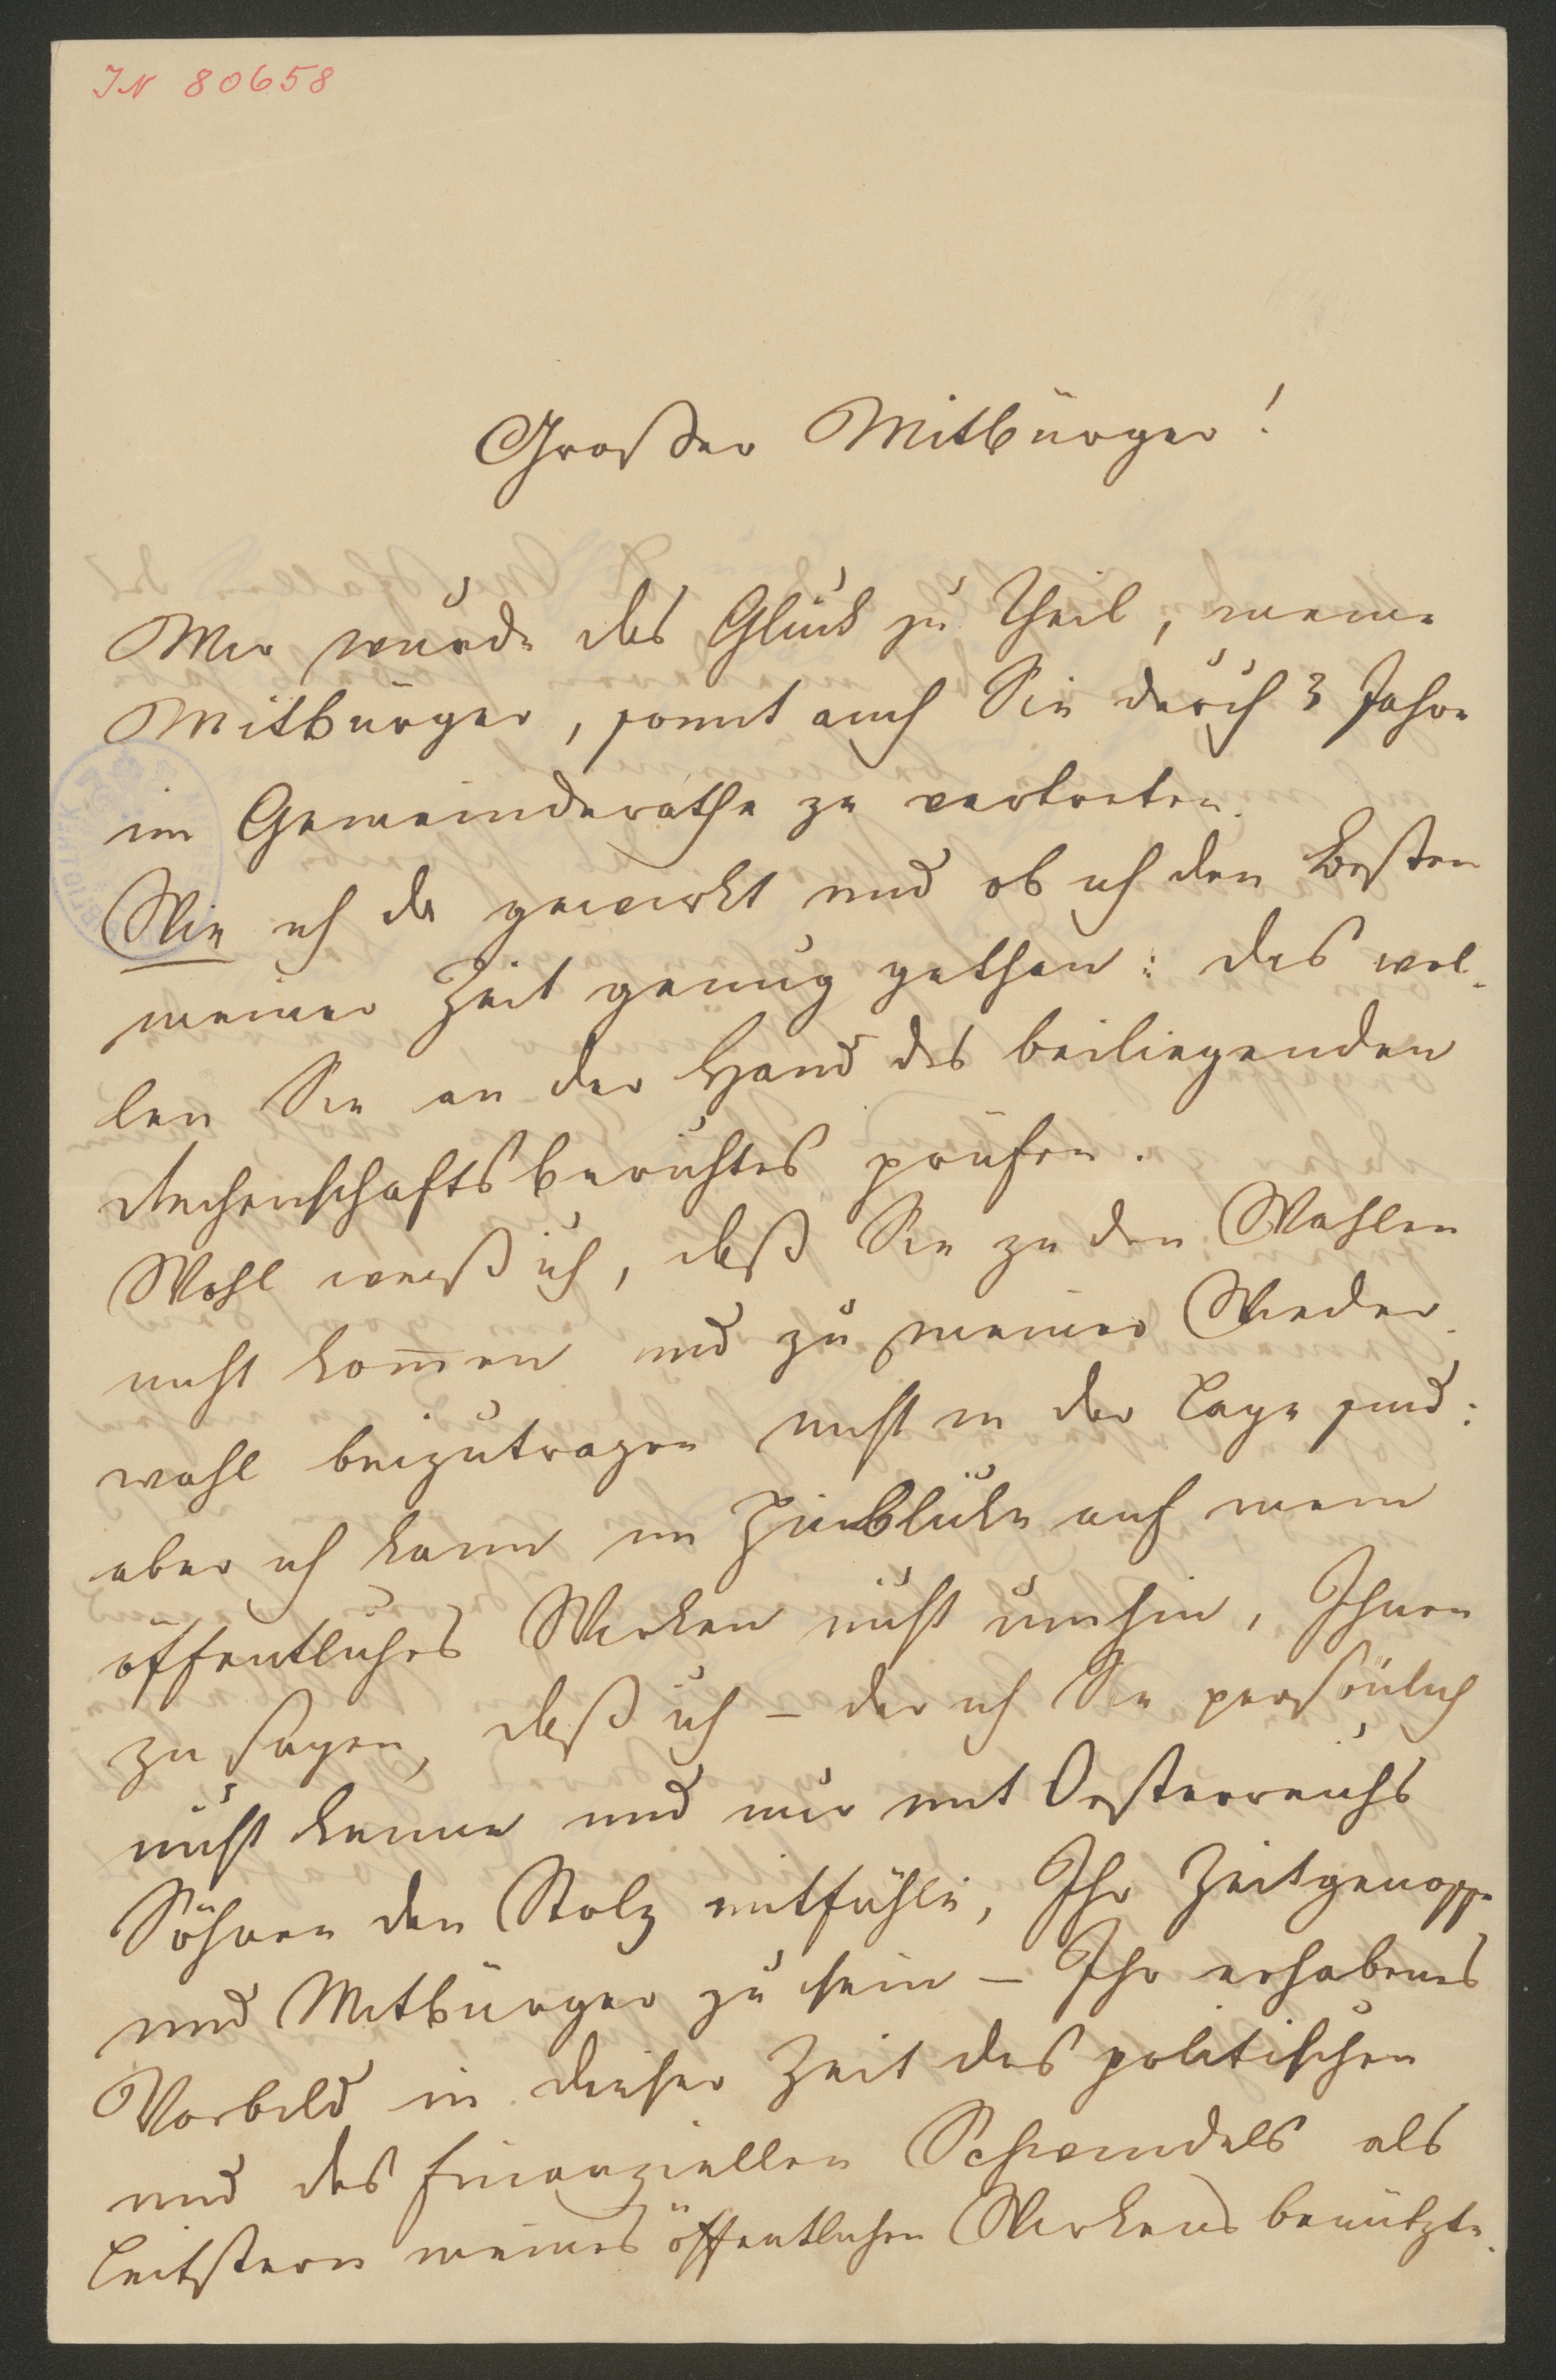 IN 80658
Großer Mitbürger!
Mir wurde das Glück zu Theil, meine
Mitbürger, somit auch Sie durch 3 Jahre
im Gemeinderathe zu vertreten.
Wie ich da gewirkt und ob ich den Besten
meiner Zeit genug gethan: das wol-
len Sie an der Hand des beiliegenden
Rechenschaftsberichtes prüfen.
Wohl weiß ich, daß Sie zu den Wahlen
nicht kom̅en und zu meiner Wieder-
wahl beizutragen nicht in der Lage sind:
aber ich kann im Hinblicke auf mein
öffentliches Wirken nicht umhin, Ihnen
zu sagen, daß ich – der ich Sie persönlich
nicht kenne und nur mit Oesterreichs
Söhnen den Stolz mitfühle, Ihr Zeitgenosse
und Mitbürger zu sein – Ihr erhabenes
Vorbild in dieser Zeit des politischen
und des finanziellen Schwindels als
Leitstern meines öffentlichen Wirkens benützte.